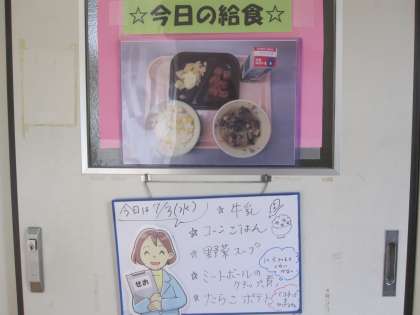 ☆今日の給食☆
今日は7/3(水)
☆ 牛乳
☆ コーンごはん
☆ 野菜スープ
☆ ミートボールの
ケチャップ煮
☆ たらこポテト